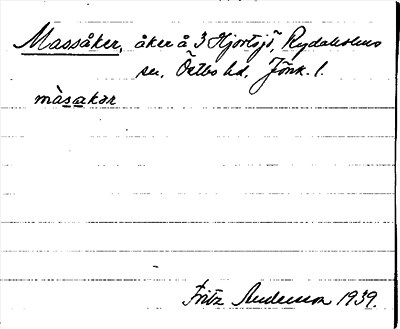 Massåker, åker å 3 Hjortsjö, Rydaholms
sn, Östbo hd, Jönk. l.
màsakər
Fritz Andersson 1939.